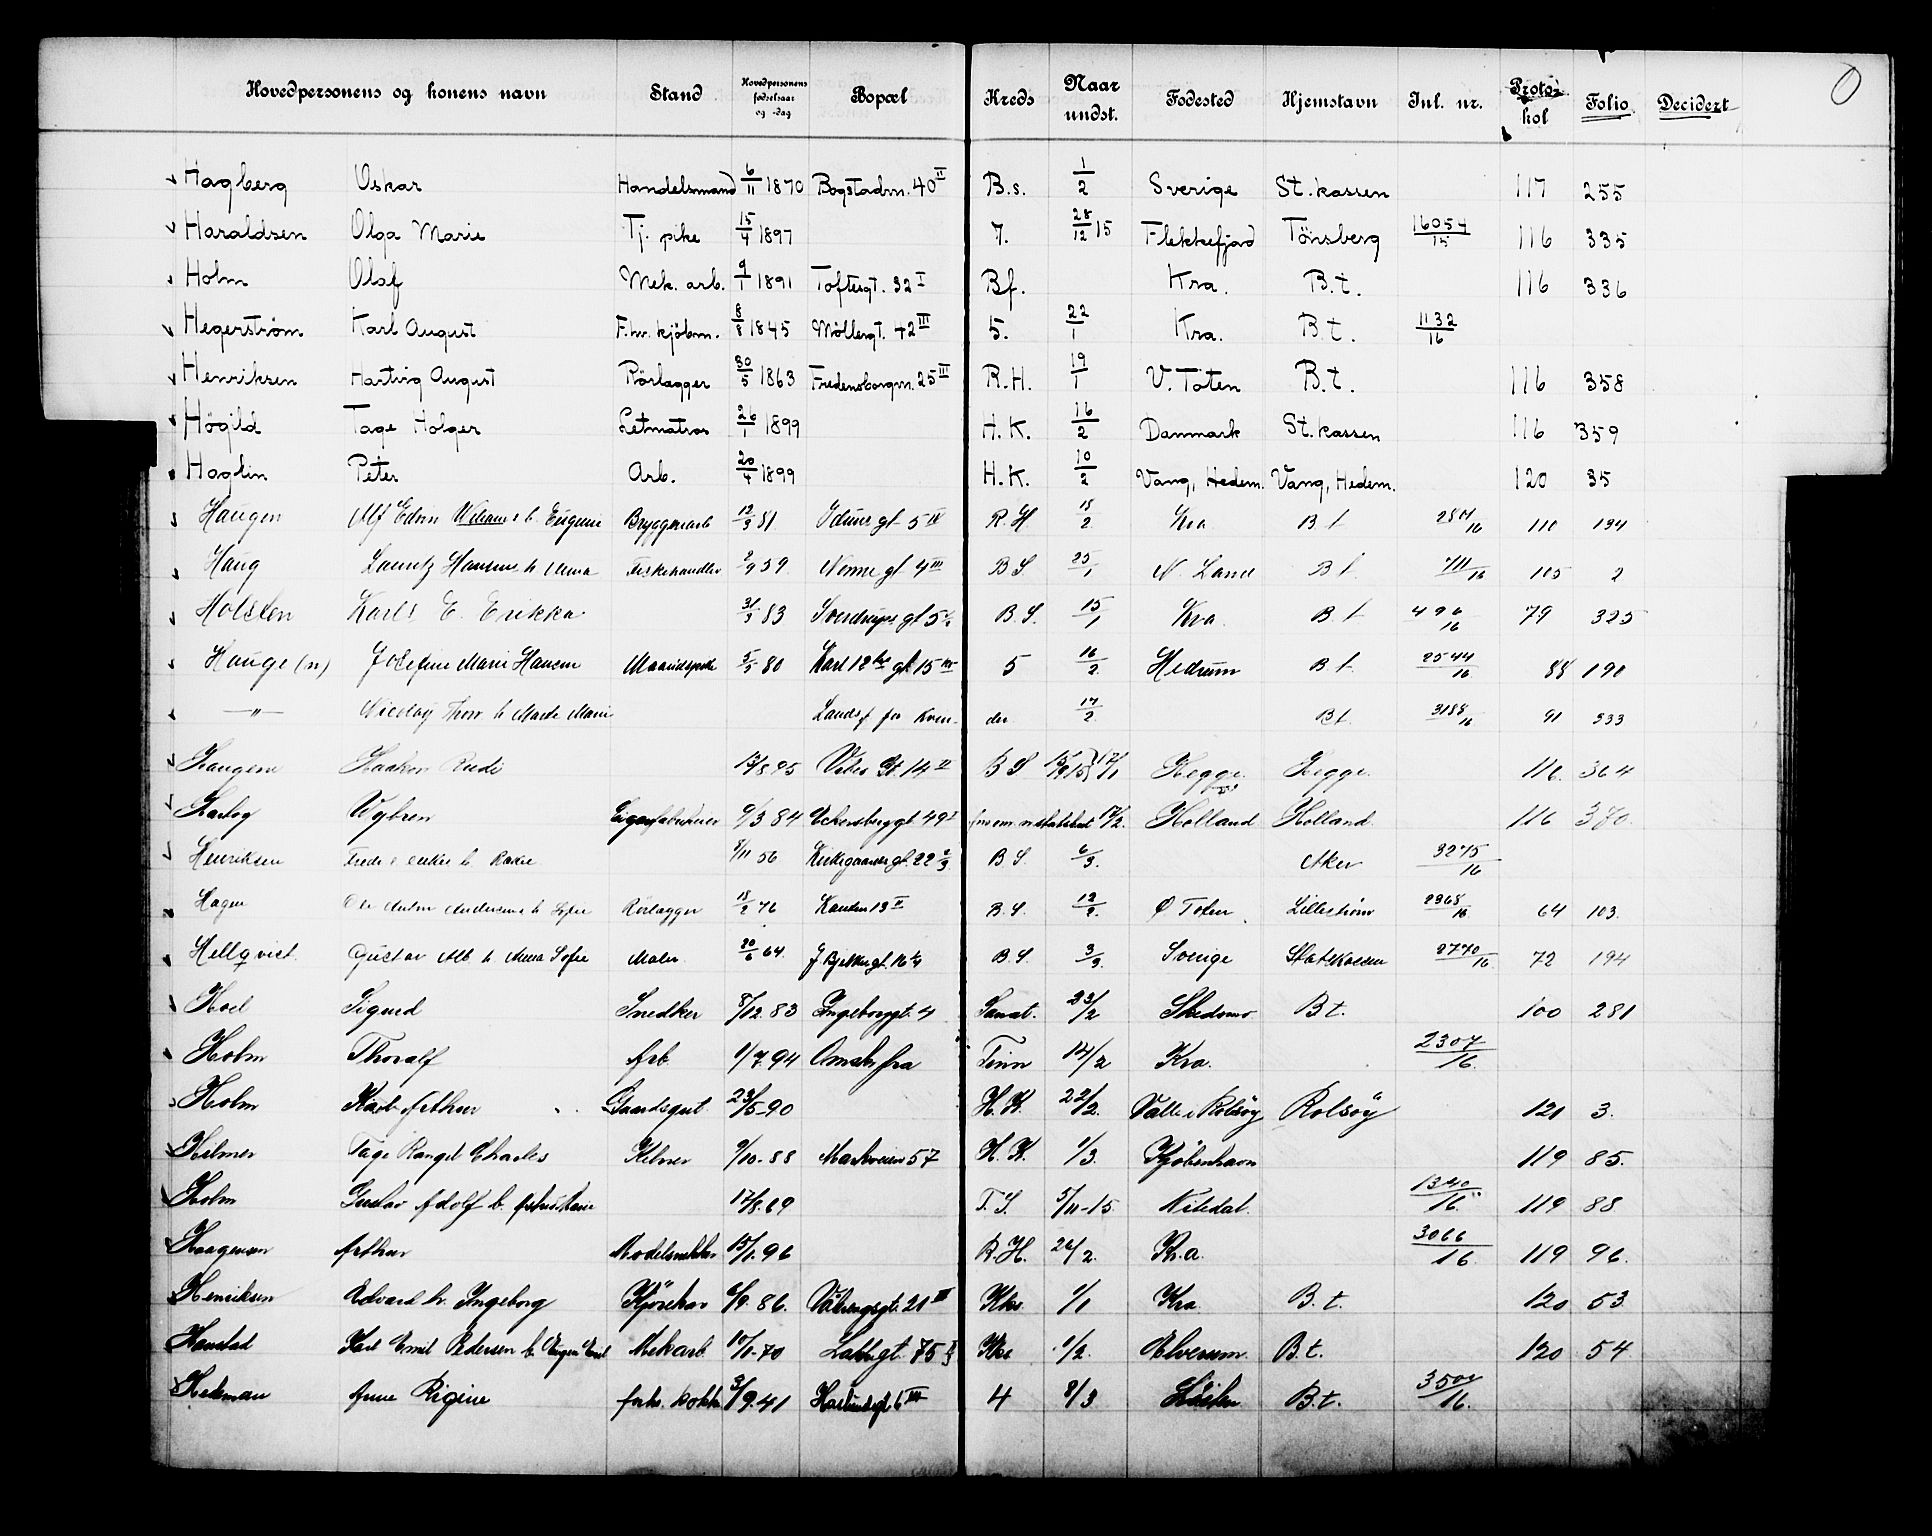 Hovedpersonens og konens navn Stand Hovedpersonens fødselsaar og -dag Bopæl Kreds Naar undst. Fødested Hjemstavn Inl. nr. Protokol Folio Decidert
Hagberg Oskar Handelsmand 6/11 1870 Bogstadvn. 40 II B.s. 1/2 Sverige St. kassen 117 255
Haraldsen Olga Marie Tj. pike 15/4 1897 7. 28/12 15 Flekkefjord Tönsberg 16054/15 116 335
Holm Olaf Mek. arb. 9/1 1891 Toftesgt. 32 I Bf. Kra. B.t. 116 336
Hegerstrøm Karl August F.hv. kjöbm. 8/8 1845 Møllergt. 42 III 5. 22/1 Kra. B.t. 1132/16
Henriksen Hartvig August Rörlægger 30/5 1863 Fredensborgvn. 25 III R.H. 19/1 V. Toten B.t. 116 358
Högild Tage Holger Letmatros 26/1 1899 H.K. 16/2 Danmark St. kassen 116 359
Haglin Peter Arb. 20/4 1899 H.K. 10/2 Vang, Hedem. Vang, Hedem. 120 35
Haugen Alf Edvin h. Eugenie Bryggeriarb 12/3 81 Iduns gt 5 R.H. 18/2 Kra B t 110 194
Haug Lauritz Hansen h Anna Fiskehandler 2/9 59 Nonne gt 4 III B S. 25/1 N. Land B t. 711/16 105 2
Holsten Karls E. Erikka 31/3 83 Sverdrups gt 5 B.S. 15/1 Kra. B t 496/16 79 325
Hauge (n) Josefine Marie Hansen 5/5 80 Karl 12tes gt 15 III 5 16/2 Hedrum B t 2544/16 88 190
—"— Nicolay Thorv h Marte Marie Landsf fra Kven- der 17/2. Bt. 3188/16 91 333
Haugene Haakon Rudi 13/8 95 Vibes Gt. 14 II B S 17/1 Rygge. Rygge. 116. 364
Hartog Wybren Cigarfabrikerer 6/3 84 Eckersberggt. 49 I 17/2. Holland Holland. 116 370.
Henriksen h. 8/11 56 Kirkegaards gt. 22 2/3 B S. 6/3. Aker 3275/16
Hagen Ole Anton Andersen h Rørlægger 18/2 76 13 II B.S. Ø Toten Lillestrøm 2368/16 64 103.
Hellqvist. Gustav Alb h. Anna Sofie Maler 20/6 64. J Bjelkesgt. 16 B.S. 3/3. Sverige Statskassen 2770/16. 72 194
Hoel Sigurd Snedker 8/12. 83 Ingeborggt. 4 Sanat. 23/2 Skedsmo Bt. 100 281
Holm Thoralf Arb. 1/7. 94 Omst. fra Tinn 14/2 Kra. 2307/16.
Holm Karl Arthur Gaardsgut 23/5-90 H.K. 22/2. Rolsøy Rolsöy 121 3.
Hilmer Tage Rangel Charles Kelner 9/10-88 Markveien 57 H.K. 1/3. Kjøbenhavn 119 85.
Holm Gustav Adolf h. 17/8. 69 T.S. 5/11-15 Nitedal. 1340/16. 119 88
Haagensen Arthur 15/1. 96 R.H. 26/2. Kr.a. 3066/16. 119 96.
Henriksen Edvard h. Ingeborg Kjörekar 6/9. 86. Vålerengsgt. 21 III Khs 1/1 Kra. B.t. 120 53
Hanstad Karl Emil Pedersen h. Mekarb. 10/1-70 Lakkegt. 75 Khs 1/2. Elverum. B.t. 120 54.
Anne Rigine 3/9. 41 6 III 4 8/3 B.t.